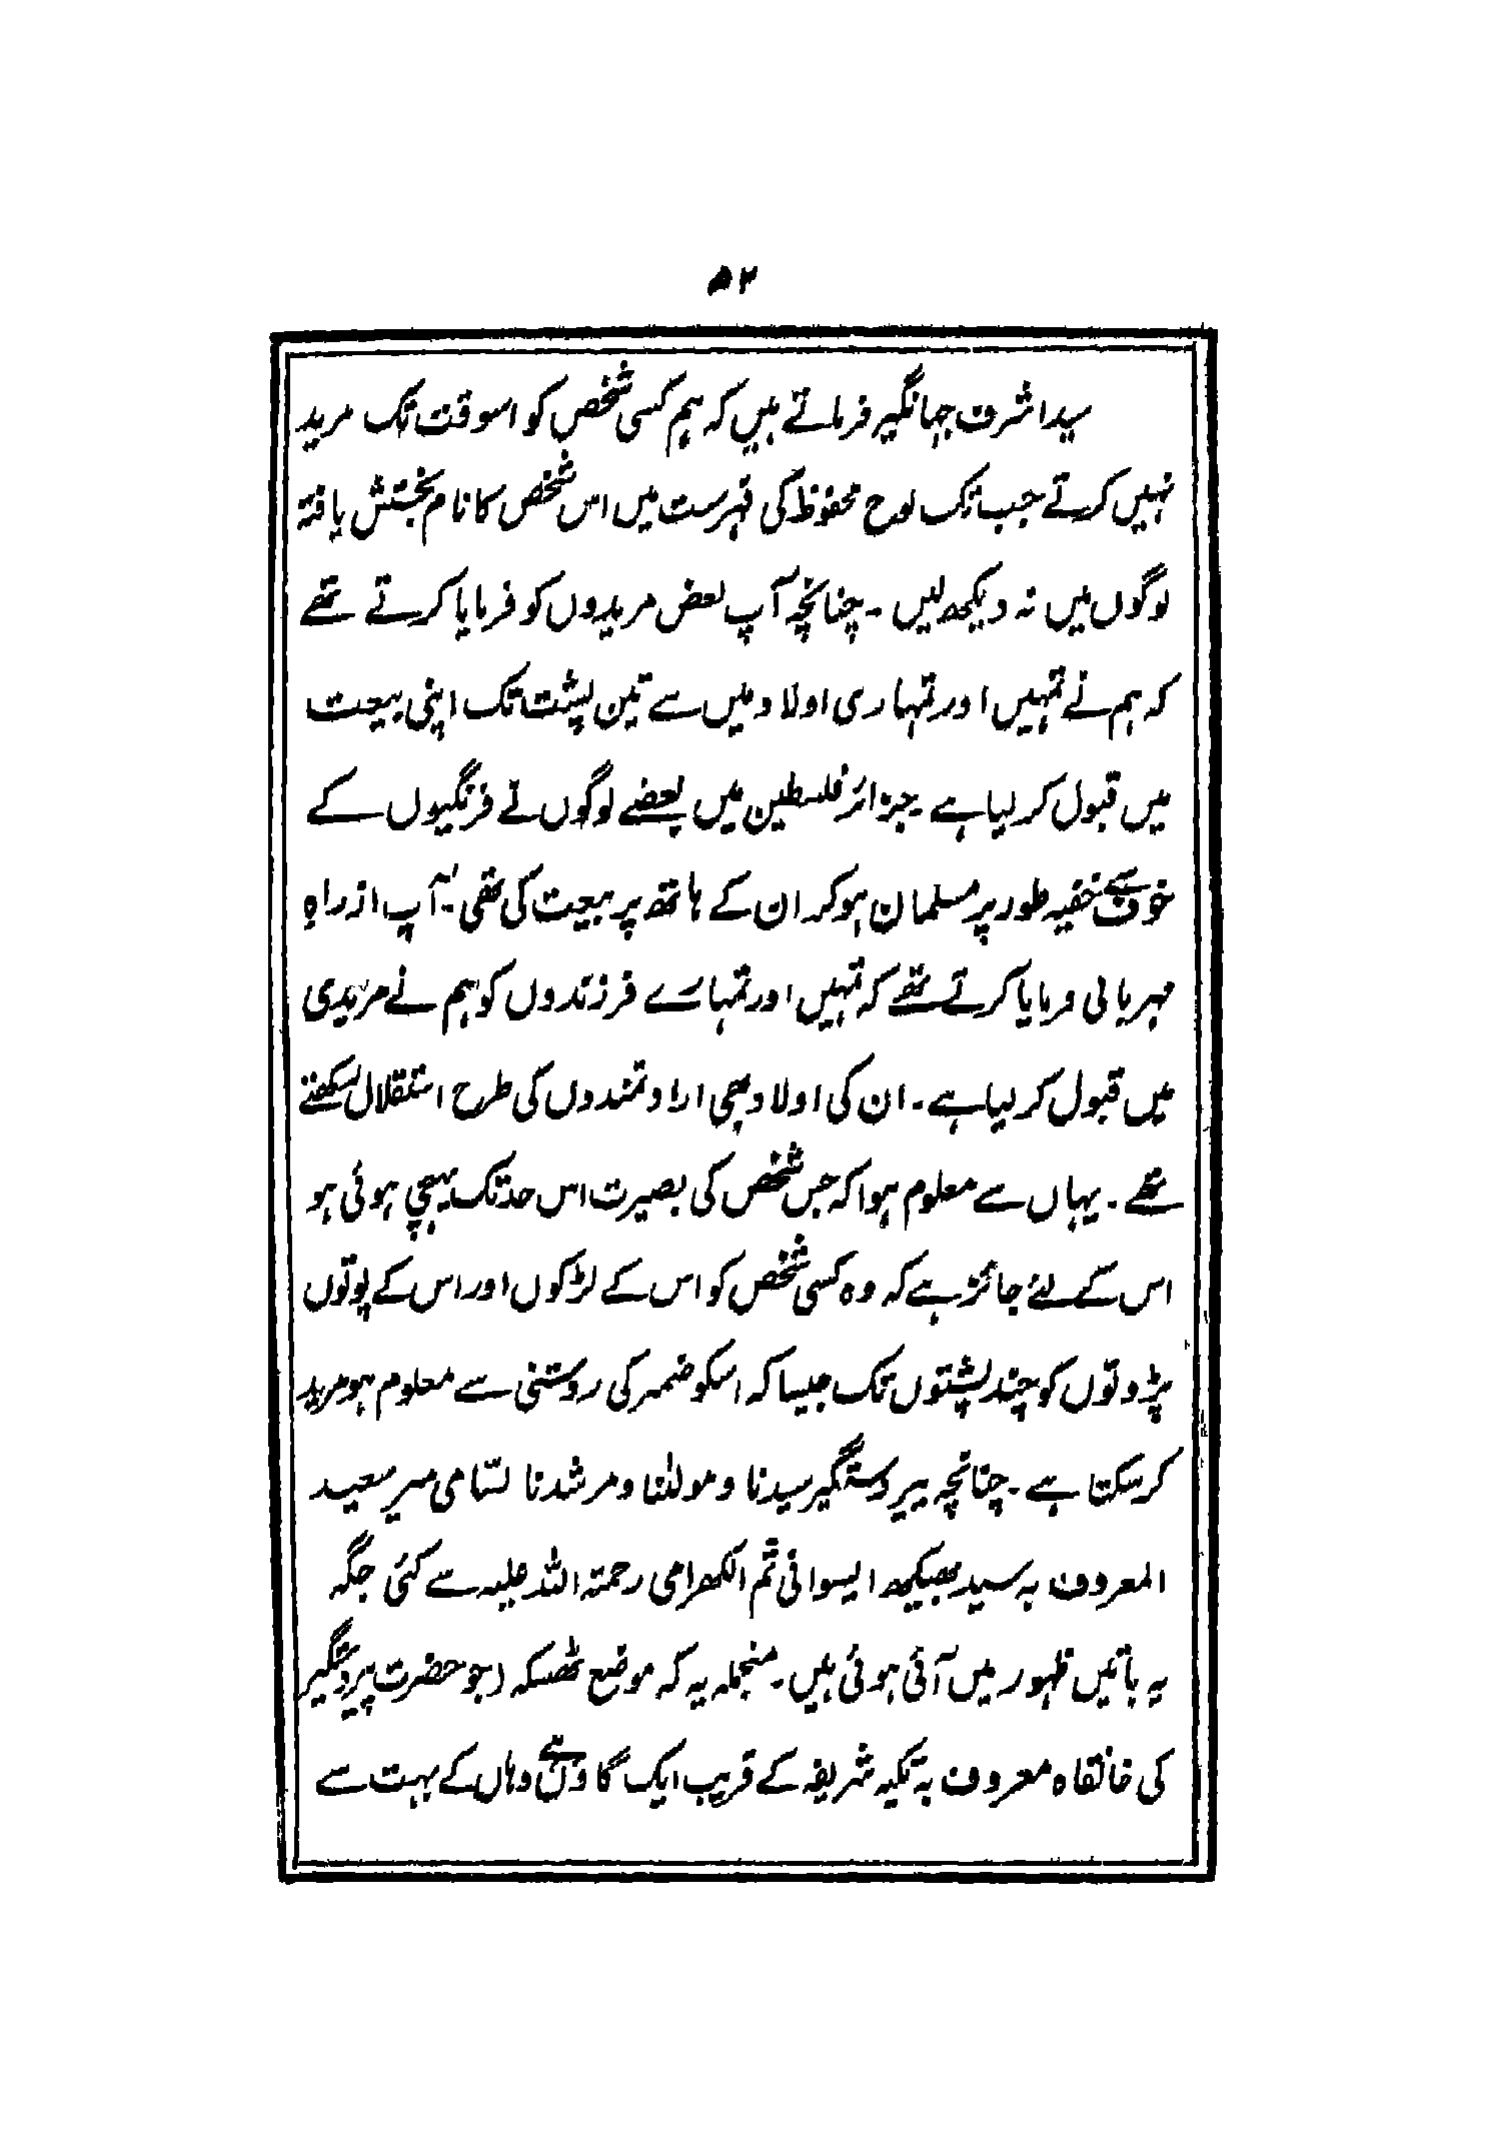 ۵۲
سید اشرف جہانگیر فرماتے ہیں کہ ہم کسی شخص کو اسوقت تک مرید
نہیں کرتے جب تک لوح محفوظ کی فہرست میں اس شخص کا نام بخشش یافتہ
لوگوں میں نہ دیکھ لیں ۔ چنانچہ آپ بعض مریدوں کو فرمایا کرتے تھے
کہ ہم نے تمہیں اور تمہاری اولاد میں سے تین پشت تک اپنی بیعت
میں قبول کر لیا ہے ۔ جزائر فلسطین میں بعضے لوگوں نے فرنگیوں کے
خوف سے خفیہ طور پر مسلمان ہو کر ان کے ہاتھ پر بیعت کی تھی ۔ آپ از راہِ
مہربانی فرمایا کرتے تھے کہ تمہیں اور تمہارے فرزندوں کو ہم نے مریدی
میں قبول کر لیا ہے ۔ ان کی اولاد بھی ارادتمندوں کی طرح استقلال رکھتے
تھے ۔ یہاں سے معلوم ہوا کہ جس شخص کی بصیرت اس حد تک پہنچی ہوئی ہو
اس کے لئے جائز ہے کہ وہ کسی شخص کو اس کے لڑکوں اور اس کے پوتوں
پڑوتوں کو چند پشتوں تک جیسا کہ اسکو ضمیر کی روشنی سے معلوم ہو مرید
کر سکتا ہے ۔ چنانچہ پیر دستگیر سیدنا و مولٰنا و مرشدنا لسّامی میر سعید
المعروف بہ سید بھیکھ ایسوانی ثم الکھرامی رحمتہ اللہ علیہ سے کئی جگہ
یہ باتیں ظہور میں آئی ہوئی ہیں ۔ منجملہ یہ کہ موضع ٹھسکہ (جو حضرت پیر دستگیر
کی خانقاہ معروف بہ تکیہ شریفہ کے قریب ایک گاؤں ہے) وہاں کے بہت سے